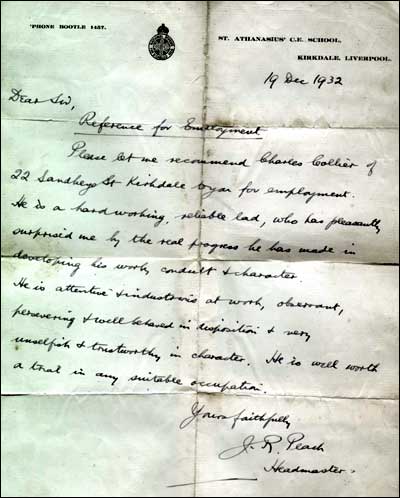 'PHONE BOOTLE 1457.
ST. ATHANASIUS' C.E. SCHOOL,
KIRKDALE, LIVERPOOL.
19 Dec 1932
Dear Sir,
Reference for Employment
Please let me recommend Charles Collier of
22 Sandheys St Kirkdale to you for employment.
He is a hardworking, reliable lad, who has pleasantly
surprised me by the real progress he has made in
developing his work, conduct & character.
He is attentive & industrious at work, observant,
persevering & well behaved in disposition & very
unselfish & trustworthy in character. He is well worth
a trial in any suitable occupation.
Yours faithfully
J. R. Peach
Headmaster.